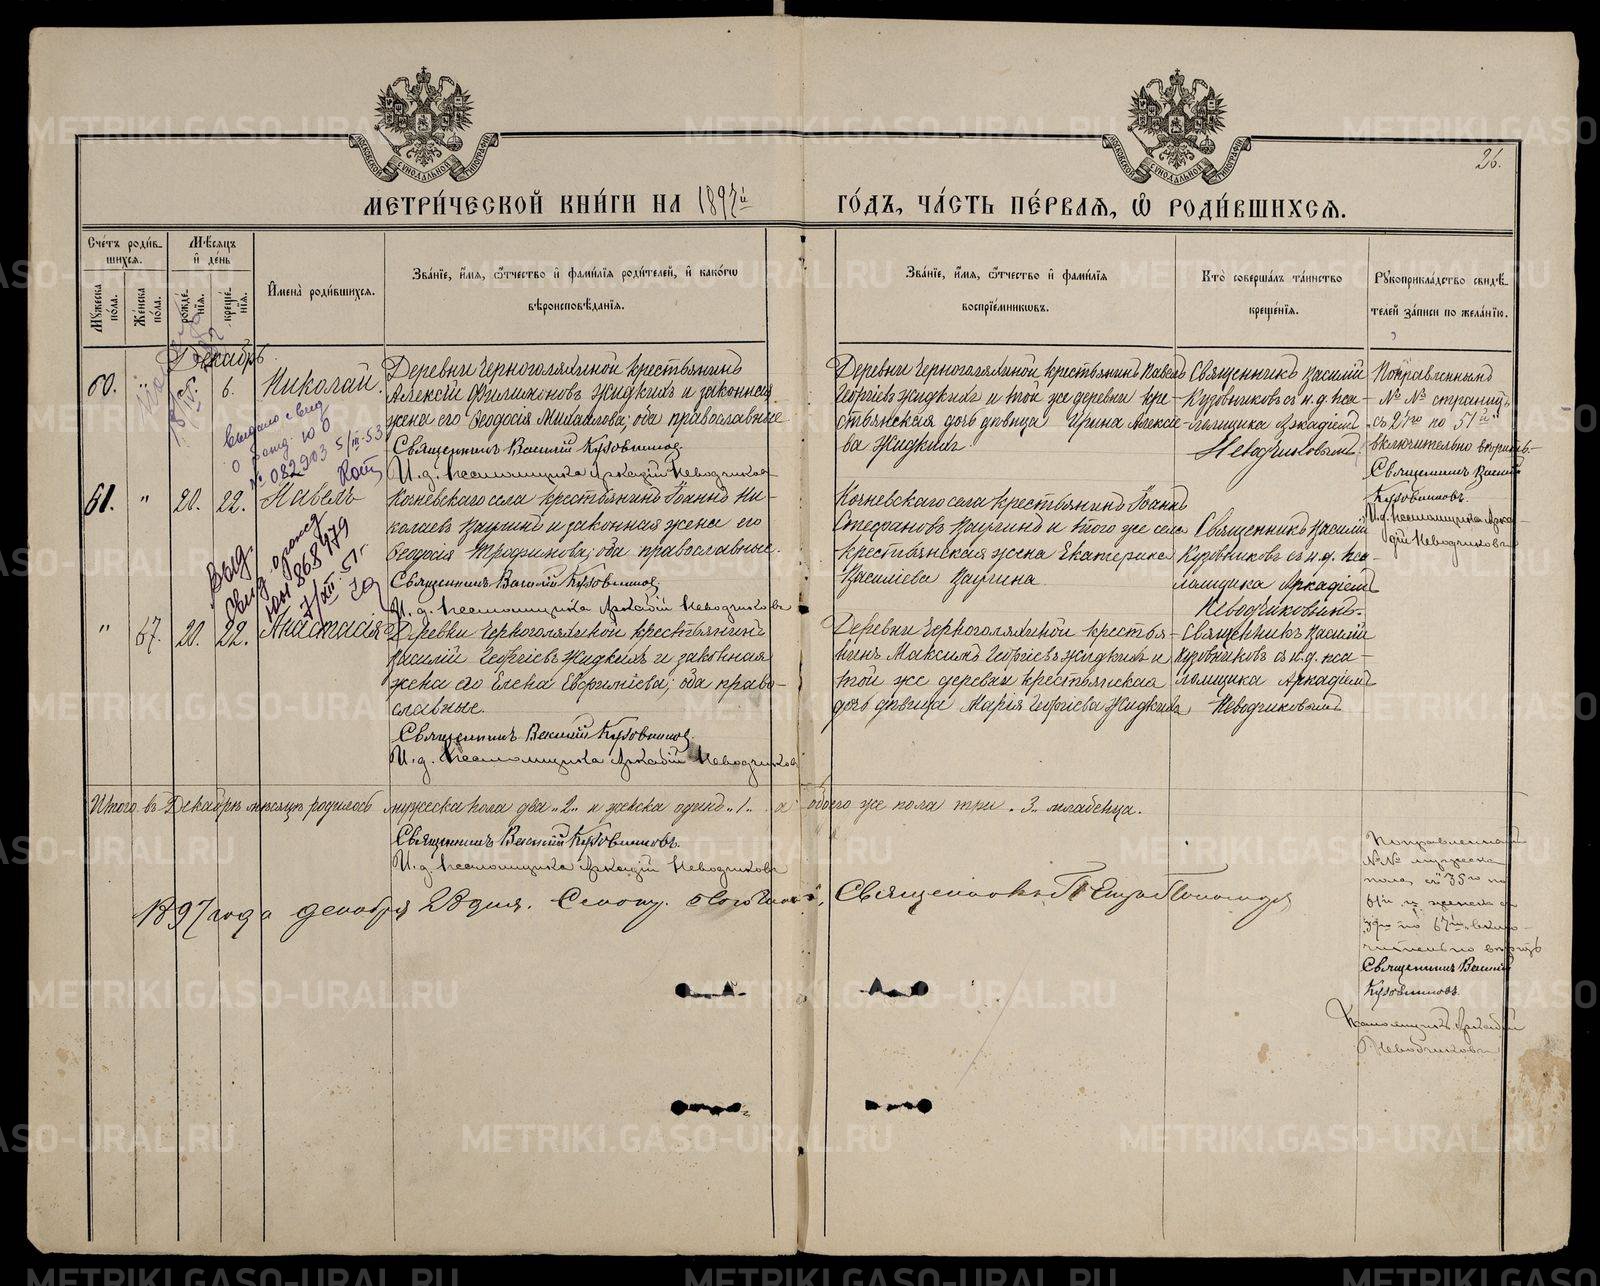 26.
МЕТРИ́ЧЕСКОЙ КНИ́ГИ НА 1897й ГО́ДЪ, ЧА́СТЬ ПЕ́РВАЯ, Ѡ҆ РОДИ́ВШИХСЯ.
Сче́тъ роди́в-
шихся.
Мꙋ́жеска по́ла.
Же́нска по́ла.
Мѣ́сяцъ
и҆ де́нь
рожде́-нїя.
креще́-нїя.
И҆мена̀ роди́вшихся.
Зва́нїе, и҆́мя, ѻ҆́тчество и҆ фами́лїя роди́телей, и҆ како́гѡ
вѣроисповѣ́данїя.
Зва́нїе, и҆́мя, ѻ҆́тчество и҆ фами́лїя
воспрїе́мникѡвъ.
Кто̀ соверша́лъ та́инство
креще́нїя.
Рꙋкоприкла́дство свидѣ́-
телей за́писи по жела́нїю.
Декабрь
60. " 6. Николай.
Деревни Черноголяхиной крестьянинъ
Алексѣй Филимоновъ Жидкихъ и законная
жена его Ѳеодосія Михайлова; оба православные
Священникъ Василій Кузовниковъ
И. д. Псаломщика Аркадій Неводчиковъ
Деревни Черноголяхиной крестьянинъ Павелъ
Георгіевъ Жидкихъ и той же деревни кре-
стьянская дочь дѣвица Ирина Алексѣе-
ва Жидкихъ
Священникъ Василій
Кузовниковъ съ и. д. пса-
ломщика Аркадіемъ
Неводчиковымъ.
Поправленнымъ
№ № страницъ
съ 27го по 51й
включительно вѣримъ.
Священникъ Василій
Кузовниковъ.
И. д. псаломщика Арка-
дій Неводчиковъ
Выдано свид
о рожд. Ю О
№ 082903 5/III-53
61. " 20. 22. Павелъ
Кочневскаго села крестьянинъ Іоаннъ Ни-
колаевъ Ваугинъ и законная жена его
Ѳеодосія Трофимова; оба православные.
Священникъ Василій Кузовниковъ
И. д. Псаломщика Аркадій Неводчиковъ
Кочневскаго села крестьянинъ Іоаннъ
Стефановъ Ваугинъ и того же села
крестьянская жена Екатерина
Василіева Ваугина
Священникъ Василій
Кузовниковъ съ и. д. пса-
ломщика Аркадіемъ
Неводчиковымъ.
Выд.
Свид. о рожд
868479
7/XII 51 г.
" 67. 20. 22. Анастасія
Деревни Черноголяхиной крестьянинъ
Василій Георгіевъ Жидкихъ и законная
жена его Елена Евфиміева; оба право-
славные.
Священникъ Василій Кузовниковъ.
И. д. Псаломщика Аркадій Неводчиковъ
Деревни Черноголяхиной крестья-
нинъ Максимъ Георгіевъ Жидкихъ и
той же деревни крестьянская
дочь дѣвица Марія Георгіева Жидкихъ
Священникъ Василій
Кузовниковъ съ и. д. пса-
ломщика Аркадіемъ
Неводчиковымъ
Итого въ Декабрѣ мѣсяцѣ родилось мужеска пола два „2" и женска одинъ „1" а обоего же пола три „3" младенца.
Священникъ Василій Кузовниковъ.
И. д. псаломщика Аркадій Неводчиковъ
1897 года декабря 28 дня. Священникъ
Поправленнымъ
№№ мужеска
пола съ 35го по
61й и женска съ
39го по 67й вклю-
чительно вѣримъ
Священникъ Василій
Кузовниковъ.
Псаломщикъ Аркадій
Неводчиковъ
METRIKI.GASO-URAL.RU